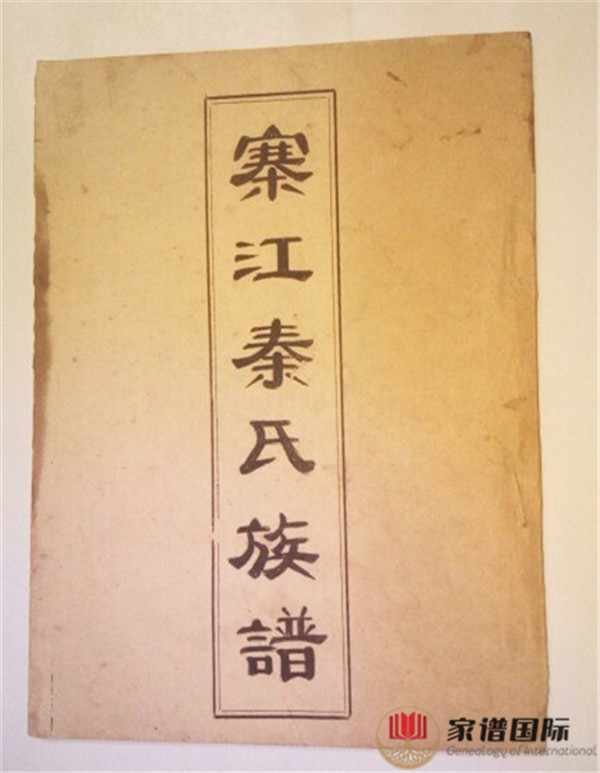 寨江秦氏族譜
家谱国际
Genealogy of International